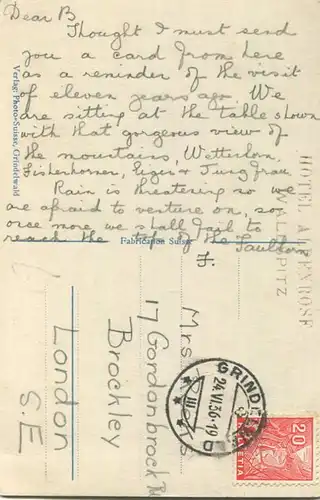 Dear B
Thought I must send
you a card from here
as a reminder of the visit
of eleven years ago We
are sitting at the table shown
with that gorgeous view of
the mountains, Wetterhorn,
Fisherhorner, Eiger & Jungfrau
Rain is threatening so we
are afraid to venture on, so
once more we shall fail to
reach the top of the Faulhorn
Verlag: Photo-Suisse, Grindelwald
Fabrication Suisse
HOTEL ALPENROSE
WALDSPITZ
Mrs
17 Gordonbrock Rd
Brockley
London
S.E
GRINDE
24.VI.36-19
III
20
HELVETIA